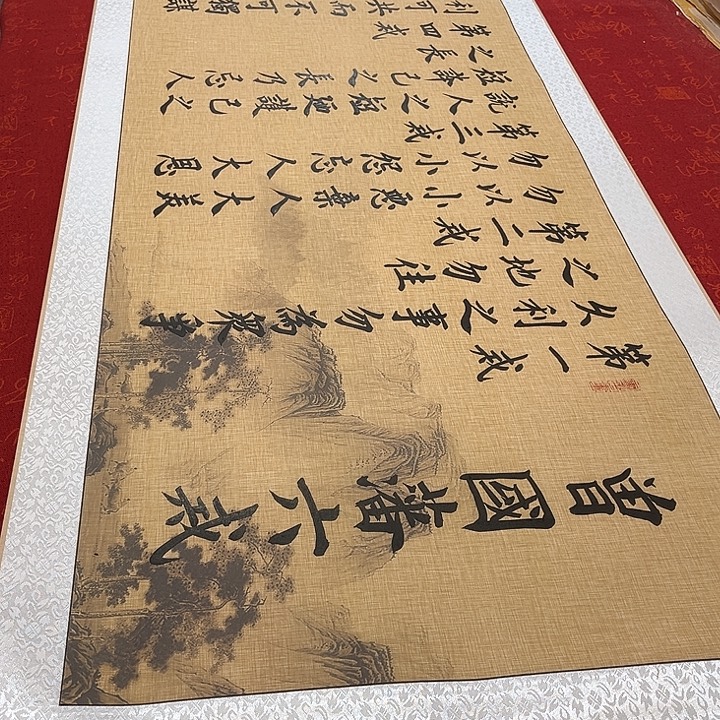 曾國藩六戒
第一戒
久利之事勿為眾爭
之地勿往
第二戒
勿以小惡棄人大義
勿以小怨忘人大恩
第三戒
說人之短廼護己之
短夸己之長乃忌人
之長
第四戒
利可共而不可獨謀